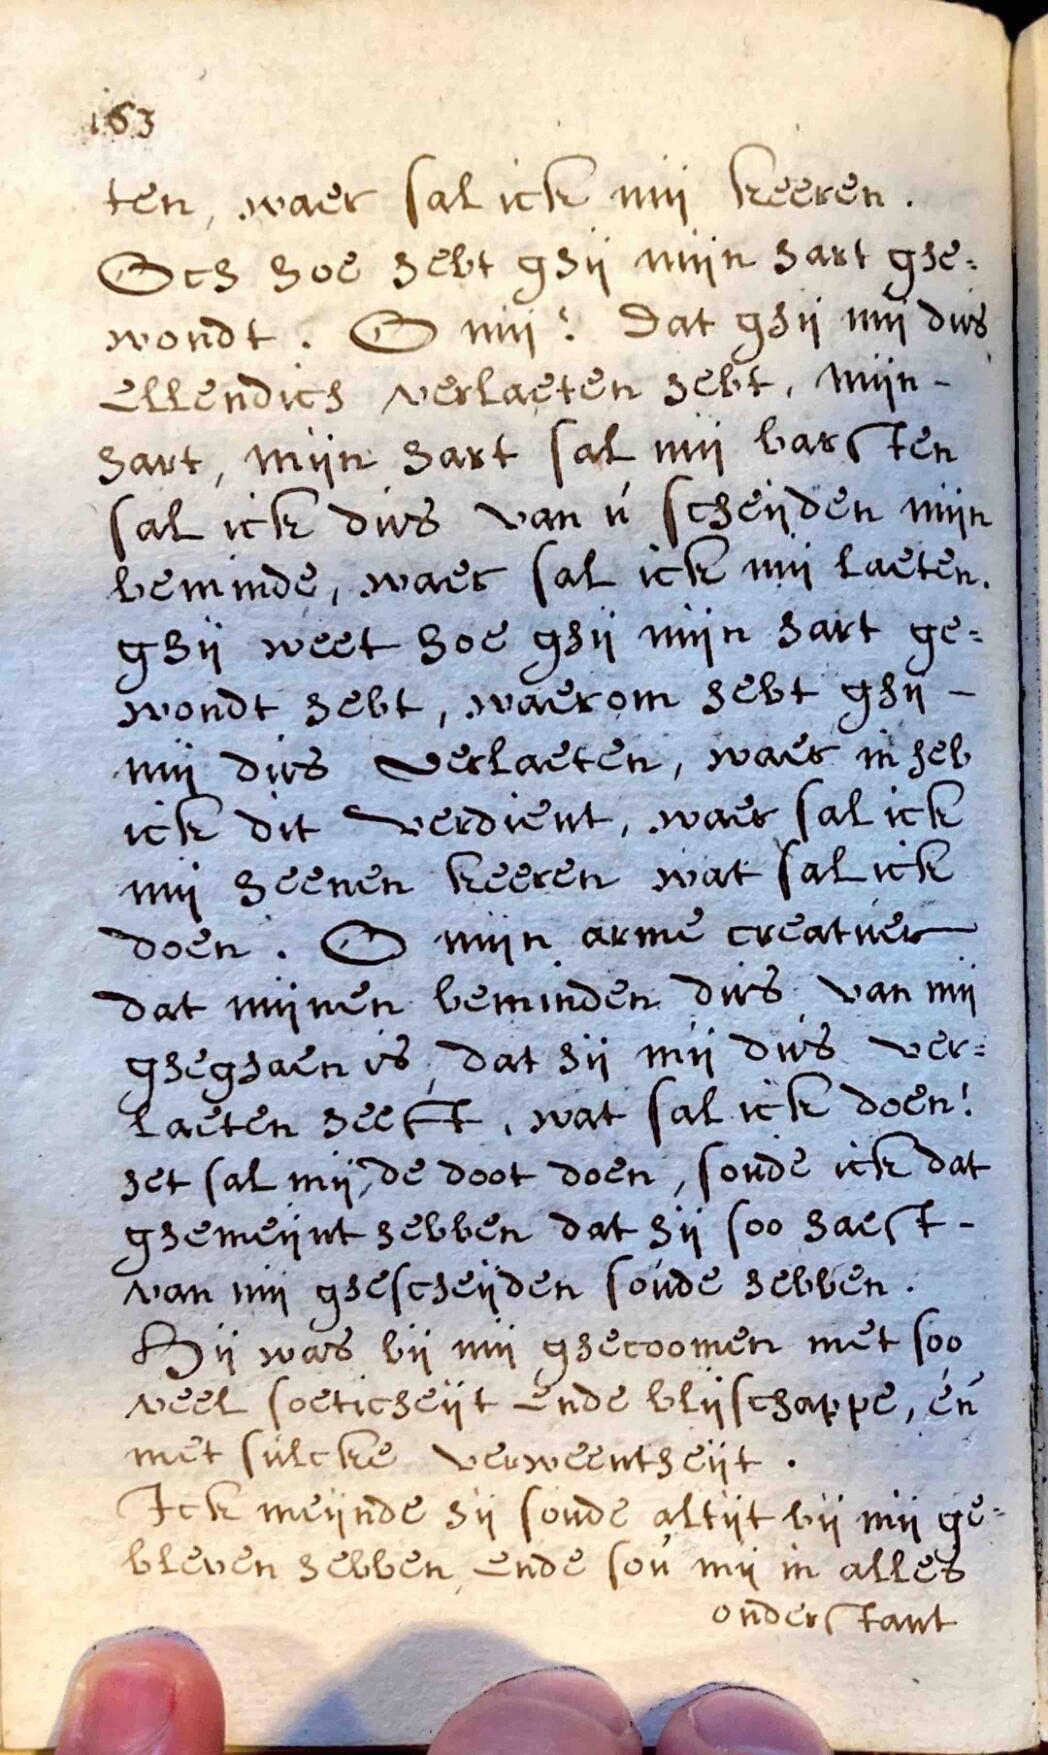 163
ten, waer sal ick mij keeren.
Och hoe hebt ghij mijn hart ghe=
wondt. O mij! Dat ghij mij dus
ellendich verlaeten hebt, mijn-
hart, mijn hart sal mij barsten
sal ick dus van ú scheijden mijn
beminde, waer sal ick mij laeten.
ghij weet hoe ghij mijn hart ge=
wondt hebt, waerom hebt ghij -
mij dus verlaeten, waer in heb
ick dit verdient, waer sal ick
mij heenen keeren wat sal ick
doen. O mijn arme creatuer
dat mijnen beminden dus van mij
gheghaen is, dat hij mij dus ver=
laeten heeft, wat sal ick doen!
het sal mij de doot doen, soude ick dat
ghemeijnt hebben dat hij soo haest-
van mij ghescheijden soude hebben.
Hij was bij mij ghecoomen met soo
veel soeticheijt ende blijschappe, én
met sulcke verweentheijt.
Ick meijnde hij soude altijt bij mij ge=
bleven hebben ende soú mij in alles
onderstant